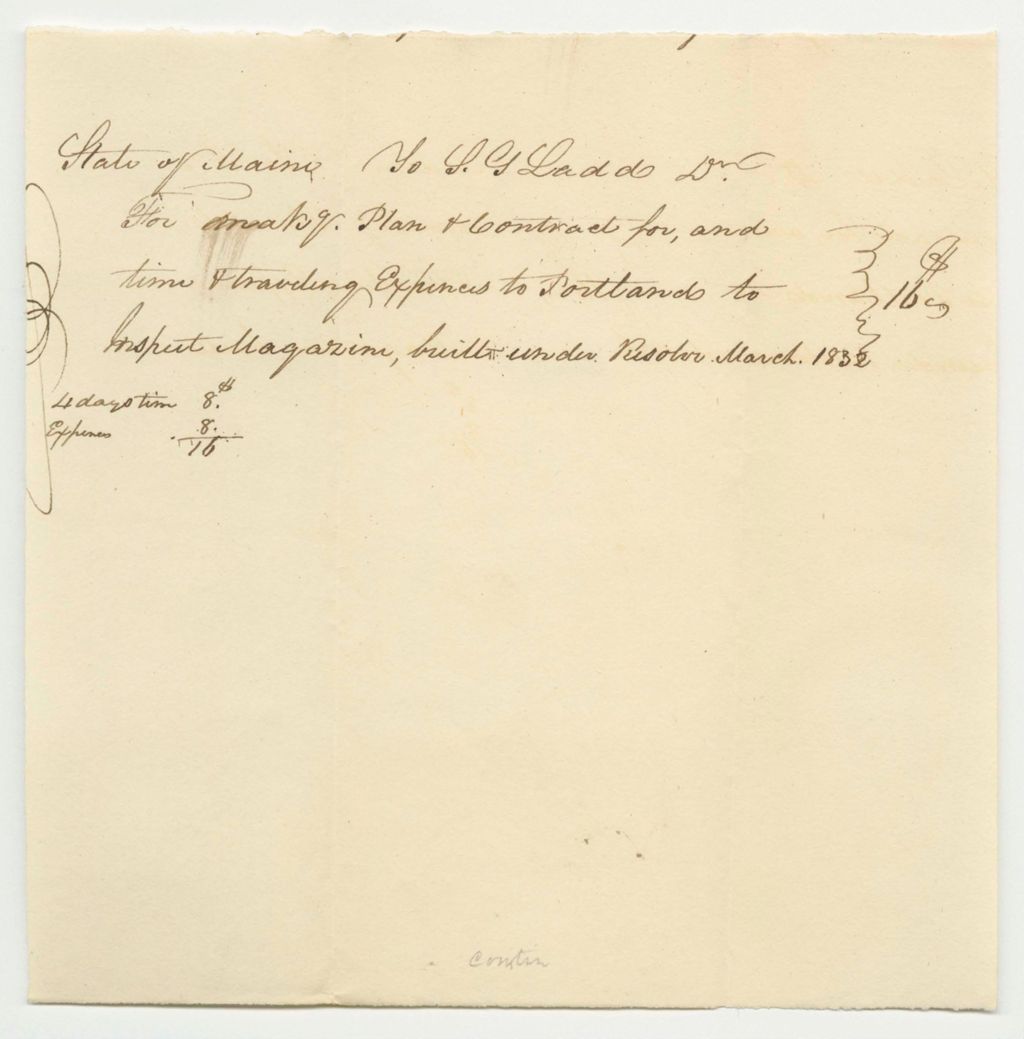 State of Maine To S. G Ladd Dr.
For makg. Plan & Contract for, and
time & traveling Expences to Portland to
$
16
Inspect Magazine, built under Resolve March. 1832
4 days time 8.$
Expences 8.
16